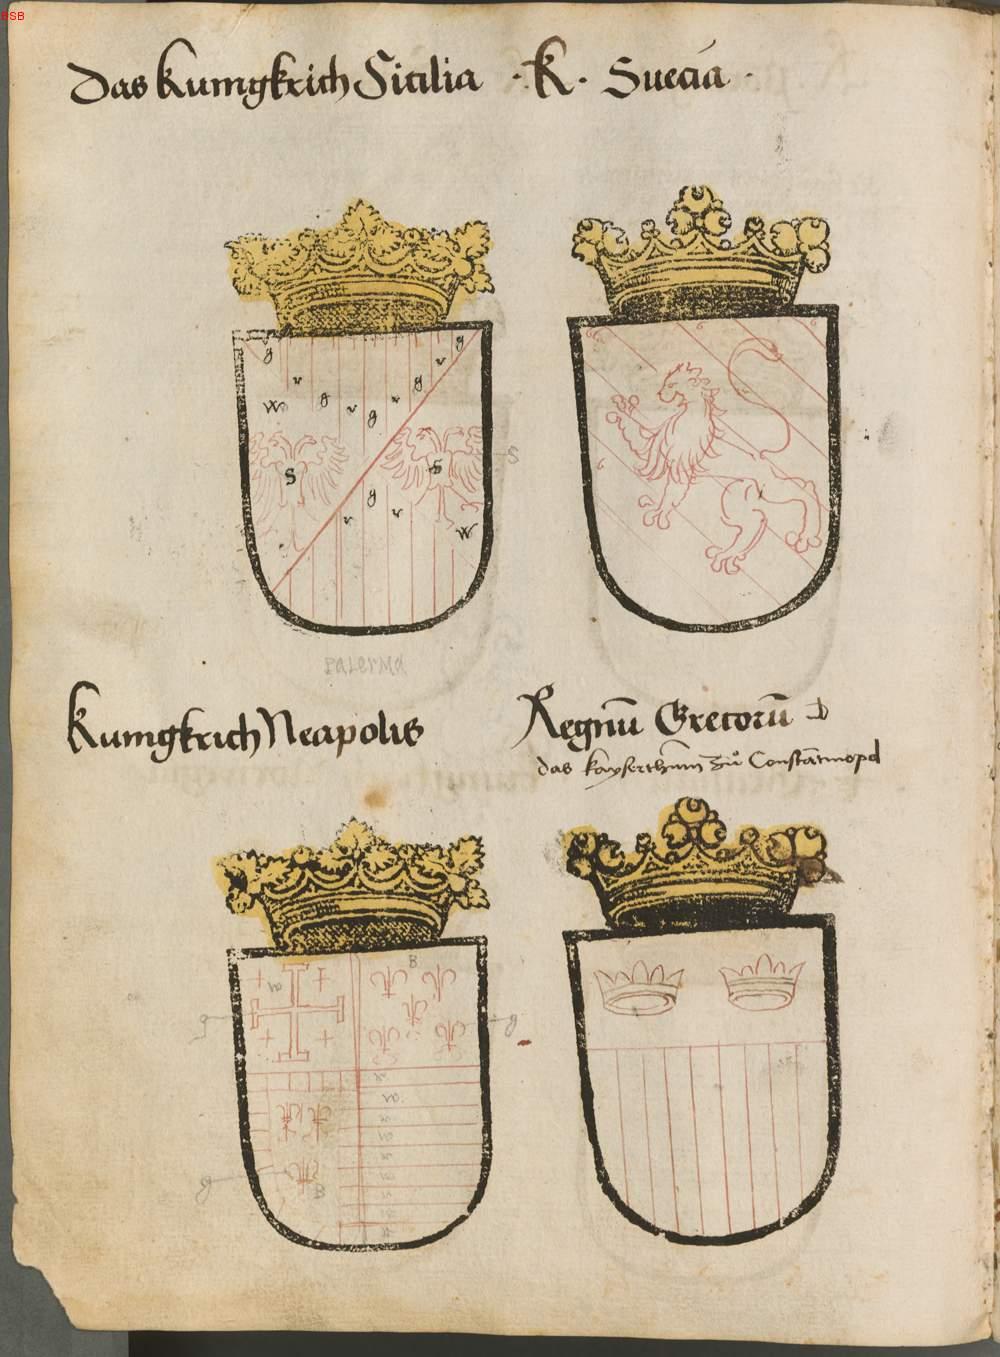 BSB
Das kunigkrich Sicilia
· K · Suecia ·
g
g
v
v
g
g
v
v
g
W
S
S
S
g
v
v
W
PALERMA
Kunigkrich Neapolis
Regnū Grecorū
das kayserthum zů Constātinopel
B
w
g
g
w
g
B